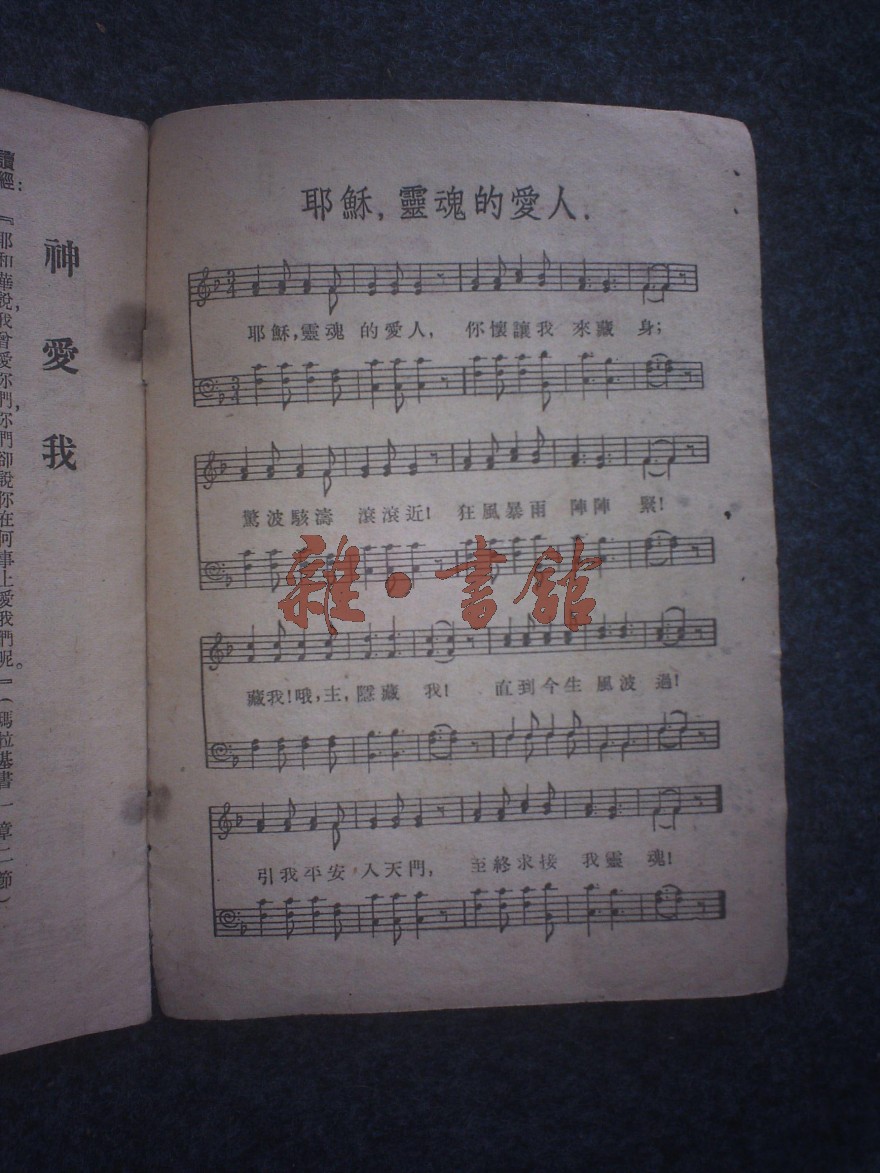 耶穌,靈魂的愛人.
耶穌,靈魂的愛人, 你懷讓我來藏身;
驚波駭濤滾滾近! 狂風暴雨陣陣緊!
藏我!哦,主,隱藏我! 直到今生風波過!
引我平安,入天門, 至終求接我靈魂!
雜·書館
神愛我
讀經:『耶和華說,我曾愛你們,你們卻說你在何事上愛我們呢。』(瑪拉基書一章二節)